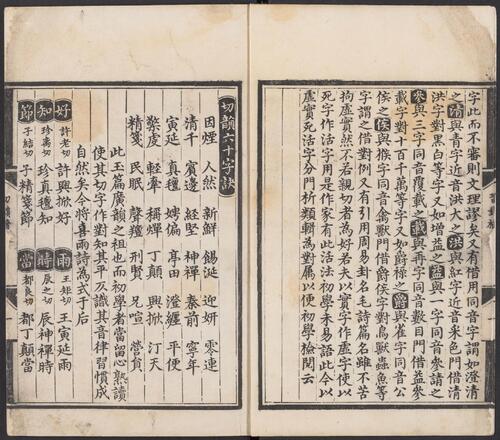 字此而不審則文理謬矣又有借用同音字謂如澄清
之清與青字近音洪大之洪與紅字近音采色門借清
洪字對黑白等字又如增益之益與一字同音參請之
參與三字同音覆載之載與再字同音數目門借益參
載字對十百千萬等字又如爵祿之爵與雀字同音公
侯之侯與猴字同音禽獸門借爵侯字對鳥獸蟲魚等
字謂之借對例又有引用周易卦名毛詩篇名雖不苦
拘虛實然不若親切者為好若夫以實字作虛字使以
死字作活字用是作家有此活法初學未易語此今以
虛實死活字分門析類輯為對屬以便初學檢閱云
切韻六十字訣
因煙 人然 新鮮 錫涎 迎妍 零連
清千 賓邊 經堅 神禪 秦前 寧年
寅延 真氊 娉偏 亭田 澄纏 平便
檠虔 輕牽 稱燀 丁顛 興掀 汀天
精箋 民眠 聲羶 刑賢 兄喧 營
此玉篇廣韻之祖也而初學者當留心熟讀
使其切字作對知其平仄識其音律習慣成
自然矣今將喜雨詩為式于后
好 許老切 許興掀好 雨 王矩切 王寅延雨
知 珍离切 珍真氊知 時 辰之切 辰神禪時
節 子結切 子精箋節 當 都良切 都丁顛當